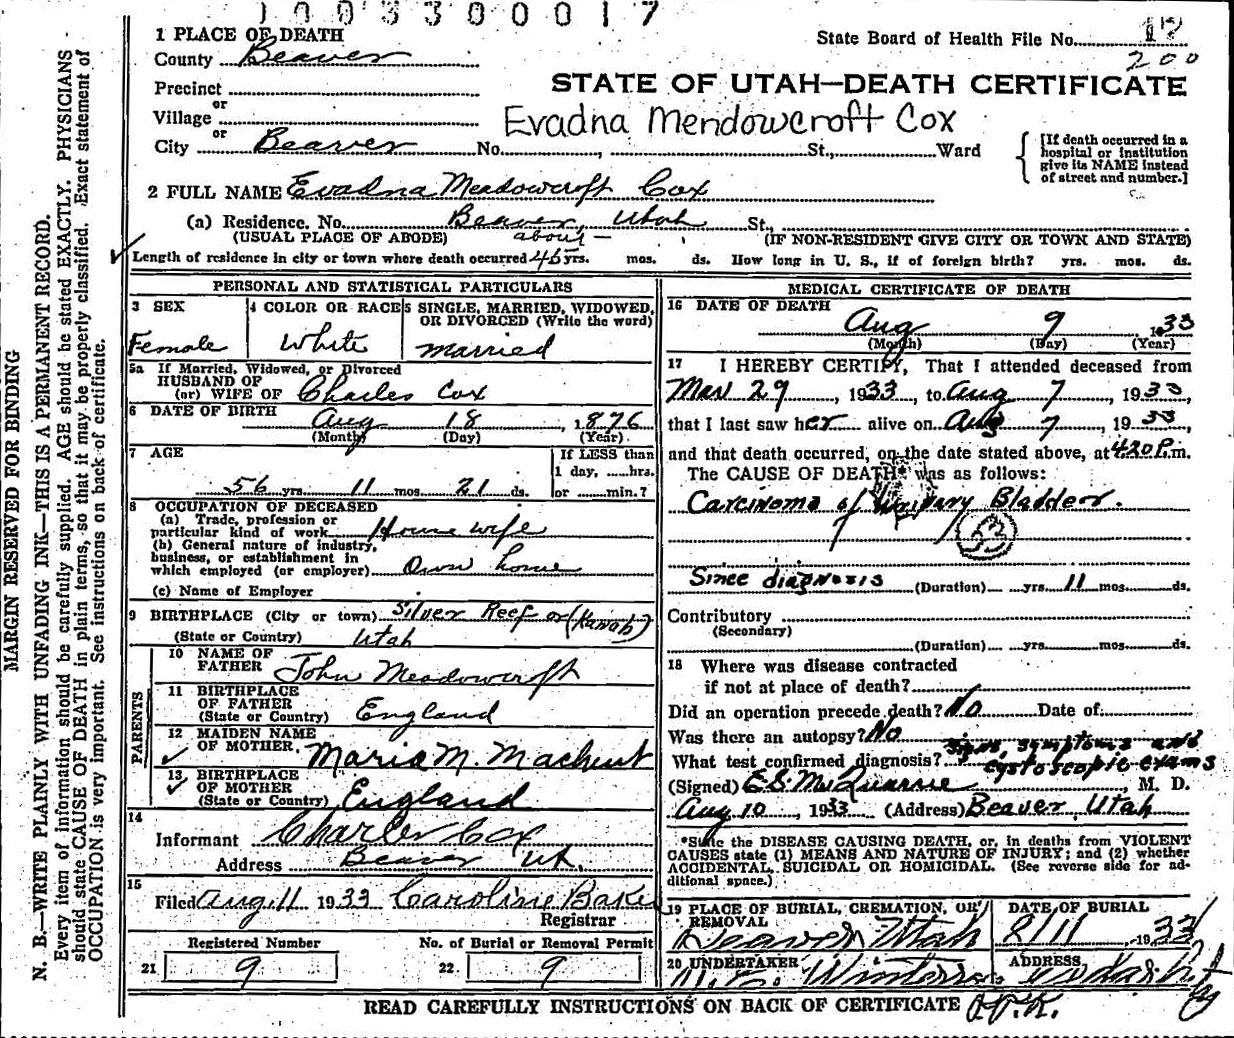 1003300017
1 PLACE OF DEATH
County Beaver
State Board of Health File No. 17
200
Precinct
or
Village
or
City Beaver No. , St., Ward
STATE OF UTAH—DEATH CERTIFICATE
Evadna Mendowcroft Cox
[If death occurred in a
hospital or institution
give its NAME instead
of street and number.]
2 FULL NAME Evadna Meadowcroft Cox
(a) Residence. No. Beaver, Utah St.,
(USUAL PLACE OF ABODE) about — (IF NON-RESIDENT GIVE CITY OR TOWN AND STATE)
Length of residence in city or town where death occurred 45 yrs. mos. ds. How long in U. S., if of foreign birth? yrs. mos. ds.
PERSONAL AND STATISTICAL PARTICULARS
3 SEX
Female
4 COLOR OR RACE
White
5 SINGLE, MARRIED, WIDOWED,
OR DIVORCED (Write the word)
married
5a If Married, Widowed, or Divorced
HUSBAND OF
(or) WIFE OF Charles Cox
6 DATE OF BIRTH Aug 18, 1876
(Month) (Day) (Year)
7 AGE
56 yrs. 11 mos. 21 ds.
If LESS than
1 day, ......hrs.
or ........min.?
8 OCCUPATION OF DECEASED
(a) Trade, profession or
particular kind of work House wife
(b) General nature of industry,
business, or establishment in
which employed (or employer) Own home
(c) Name of Employer
9 BIRTHPLACE (City or town) Silver Reef or (Kanab)
(State or Country) Utah
PARENTS
10 NAME OF
FATHER John Meadowcroft
11 BIRTHPLACE
OF FATHER
(State or Country) England
12 MAIDEN NAME
OF MOTHER Maria M.
13 BIRTHPLACE
OF MOTHER
(State or Country) England
14
Informant Charles Cox
Address Beaver Ut.
15
Filed Aug. 11 1933 Caroline Baker
Registrar
Registered Number
21 9
No. of Burial or Removal Permit
22 9
MEDICAL CERTIFICATE OF DEATH
16 DATE OF DEATH
Aug 9 1933
(Month) (Day) (Year)
17 I HEREBY CERTIFY, That I attended deceased from
Mar 29, 1933, to Aug 7, 1933,
that I last saw her alive on Aug 7, 1933,
and that death occurred, on the date stated above, at 4:20 P.m.
The CAUSE OF DEATH* was as follows:
Carcinoma of Urinary Bladder.
53
Since diagnosis (Duration) yrs. 11 mos. ds.
Contributory
(Secondary)
(Duration) yrs. mos. ds.
18 Where was disease contracted
if not at place of death?
Did an operation precede death? No Date of:
Was there an autopsy? No
What test confirmed diagnosis? Signs, symptoms and
cystoscopic exams
(Signed) E.S. McQuarrie, M. D.
Aug 10, 1933 (Address) Beaver, Utah
*State the DISEASE CAUSING DEATH, or, in deaths from VIOLENT
CAUSES state (1) MEANS AND NATURE OF INJURY; and (2) whether
ACCIDENTAL, SUICIDAL OR HOMICIDAL. (See reverse side for ad-
ditional space.)
19 PLACE OF BURIAL, CREMATION, OR
REMOVAL
Beaver Utah
DATE OF BURIAL
8/11 1933
20 UNDERTAKER
ADDRESS
Cedar City
READ CAREFULLY INSTRUCTIONS ON BACK OF CERTIFICATE
MARGIN RESERVED FOR BINDING
N. B.—WRITE PLAINLY WITH UNFADING INK—THIS IS A PERMANENT RECORD.
Every item of information should be carefully supplied. AGE should be stated EXACTLY. PHYSICIANS
should state CAUSE OF DEATH in plain terms, so that it may be properly classified. Exact statement of
OCCUPATION is very important. See instructions on back of certificate.